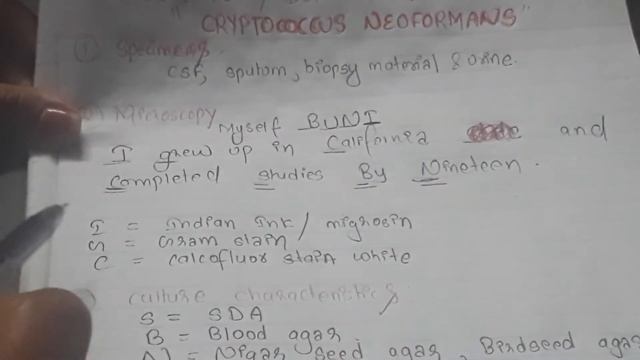 "CRYPTOCOCCUS NEOFORMANS"
① Specimens
CSF, sputum, biopsy material & urine.
Microscopy
Myself BUNI
I grew up in California and
Completed studies By Nineteen.
I = Indian Ink/ nigrosin
G = Gram stain
C = calcofluor stain white
culture characteristics
S = SDA
B = Blood agar.
N = Niger seed agar, Birdseed agar